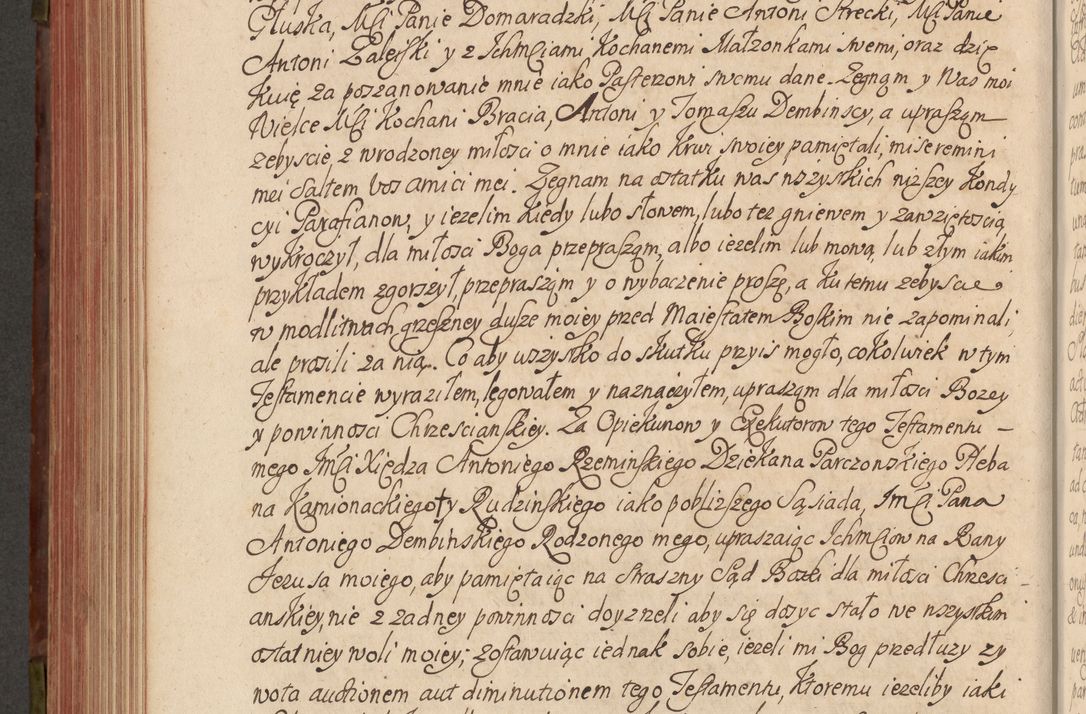 Głuska, Mći Panie Domaradzki, Mći Panie Antoni Strecki, Mći Panie
Antoni Zaleyski y z Ichmciami Kochanemi Małzonkami swemi, oraz dzię
Kuię za poszanowanie mnie iako Pasterzowi swemu dane. Zegnąm y Was moi
Wielce Mći Kochani Bracia, Antoni y Tomaszu Dembinscy, a uprasząm
zebyscie, z wrodzoney miłosci o mnie iako Krwi swoiey pamiętali, miseremini
mei saltem vos amici mei. Zegnam na ostatku was wszystkich nizszey Kondy
cyi Parafianow, y iezelim Kiedy lubo słowem, lubo tez gniewem y zawziętoscią
wykroczył, dla miłosci Boga przeprasząm, albo iezelim lub mową, lub złym iakim
przykładem zgorszył, przeprasząm y o wybaczenie proszę, a Ku temu zebyscie
w modlitwach grzeszney dusze moiey przed Maiestatem Boskim nie zapominali,
ale prosili za nią. Co aby wszystko do skutku przyis mogło, cokolwiek w tym
Testamencie wyraziłem, legowałem y naznaczyłem, uprasząm dla miłosci Bozey
y powinnosci Chrzescianskiey. Za Opiekunow y Exekutorow tego Testamentu –
mego Jmći Xiędza Antoniego Rzeminskiego Dziekana Parczowskiego Pleba
na Kamionackiego y Rudzinskiego iako pobliszego Sąsiada, Jmći Pana
Antoniego Dembinskiego Rodzonego mego, upraszaiąc Ichmciow na Rany
Jezusa moiego, aby pamiętaiąc na straszny Sąd Bozki dla miłosci Chrzesci
anskiey, nie z zadney powinnosci doyzrzeli aby się dosyc stało we wszystkim
ostatniey woli moiey; zostawuiąc iednak sobie, iezeli mi Bog przedłuzy zy
wota auctionem aut diminutionem tego Testamentu, Ktoremu iezeliby iaki